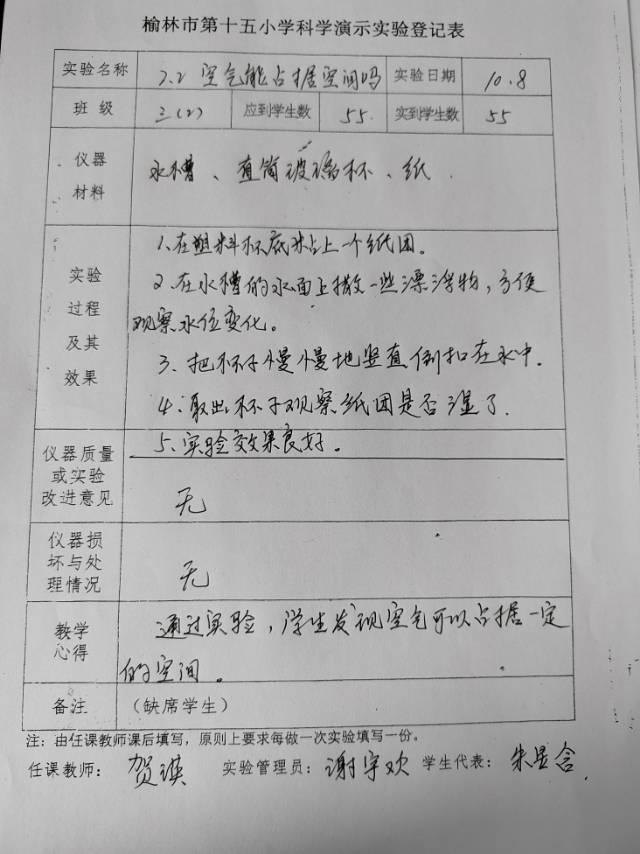 榆林市第十五小学科学演示实验登记表
实验名称 2.2 空气能占据空间吗 实验日期 10.8
班 级 三(2) 应到学生数 55. 实到学生数 55
仪器材料 水槽、直筒玻璃杯、纸.
实验过程及其效果
1、在塑料杯底粘上一个纸团。
2、在水槽的水面上撒一些漂浮物,方便
观察水位变化。
3、把杯子慢慢地竖直倒扣在水中.
4、取出杯子观察纸团是否湿了.
5、实验效果良好。
仪器质量或实验改进意见 无
仪器损坏与处理情况 无
教学心得 通过实验,学生发现空气可以占据一定
的空间。
备注 (缺席学生)
注:由任课教师课后填写,原则上要求每做一次实验填写一份。
任课教师: 贺瑛 实验管理员: 谢宇欢 学生代表: 朱显含